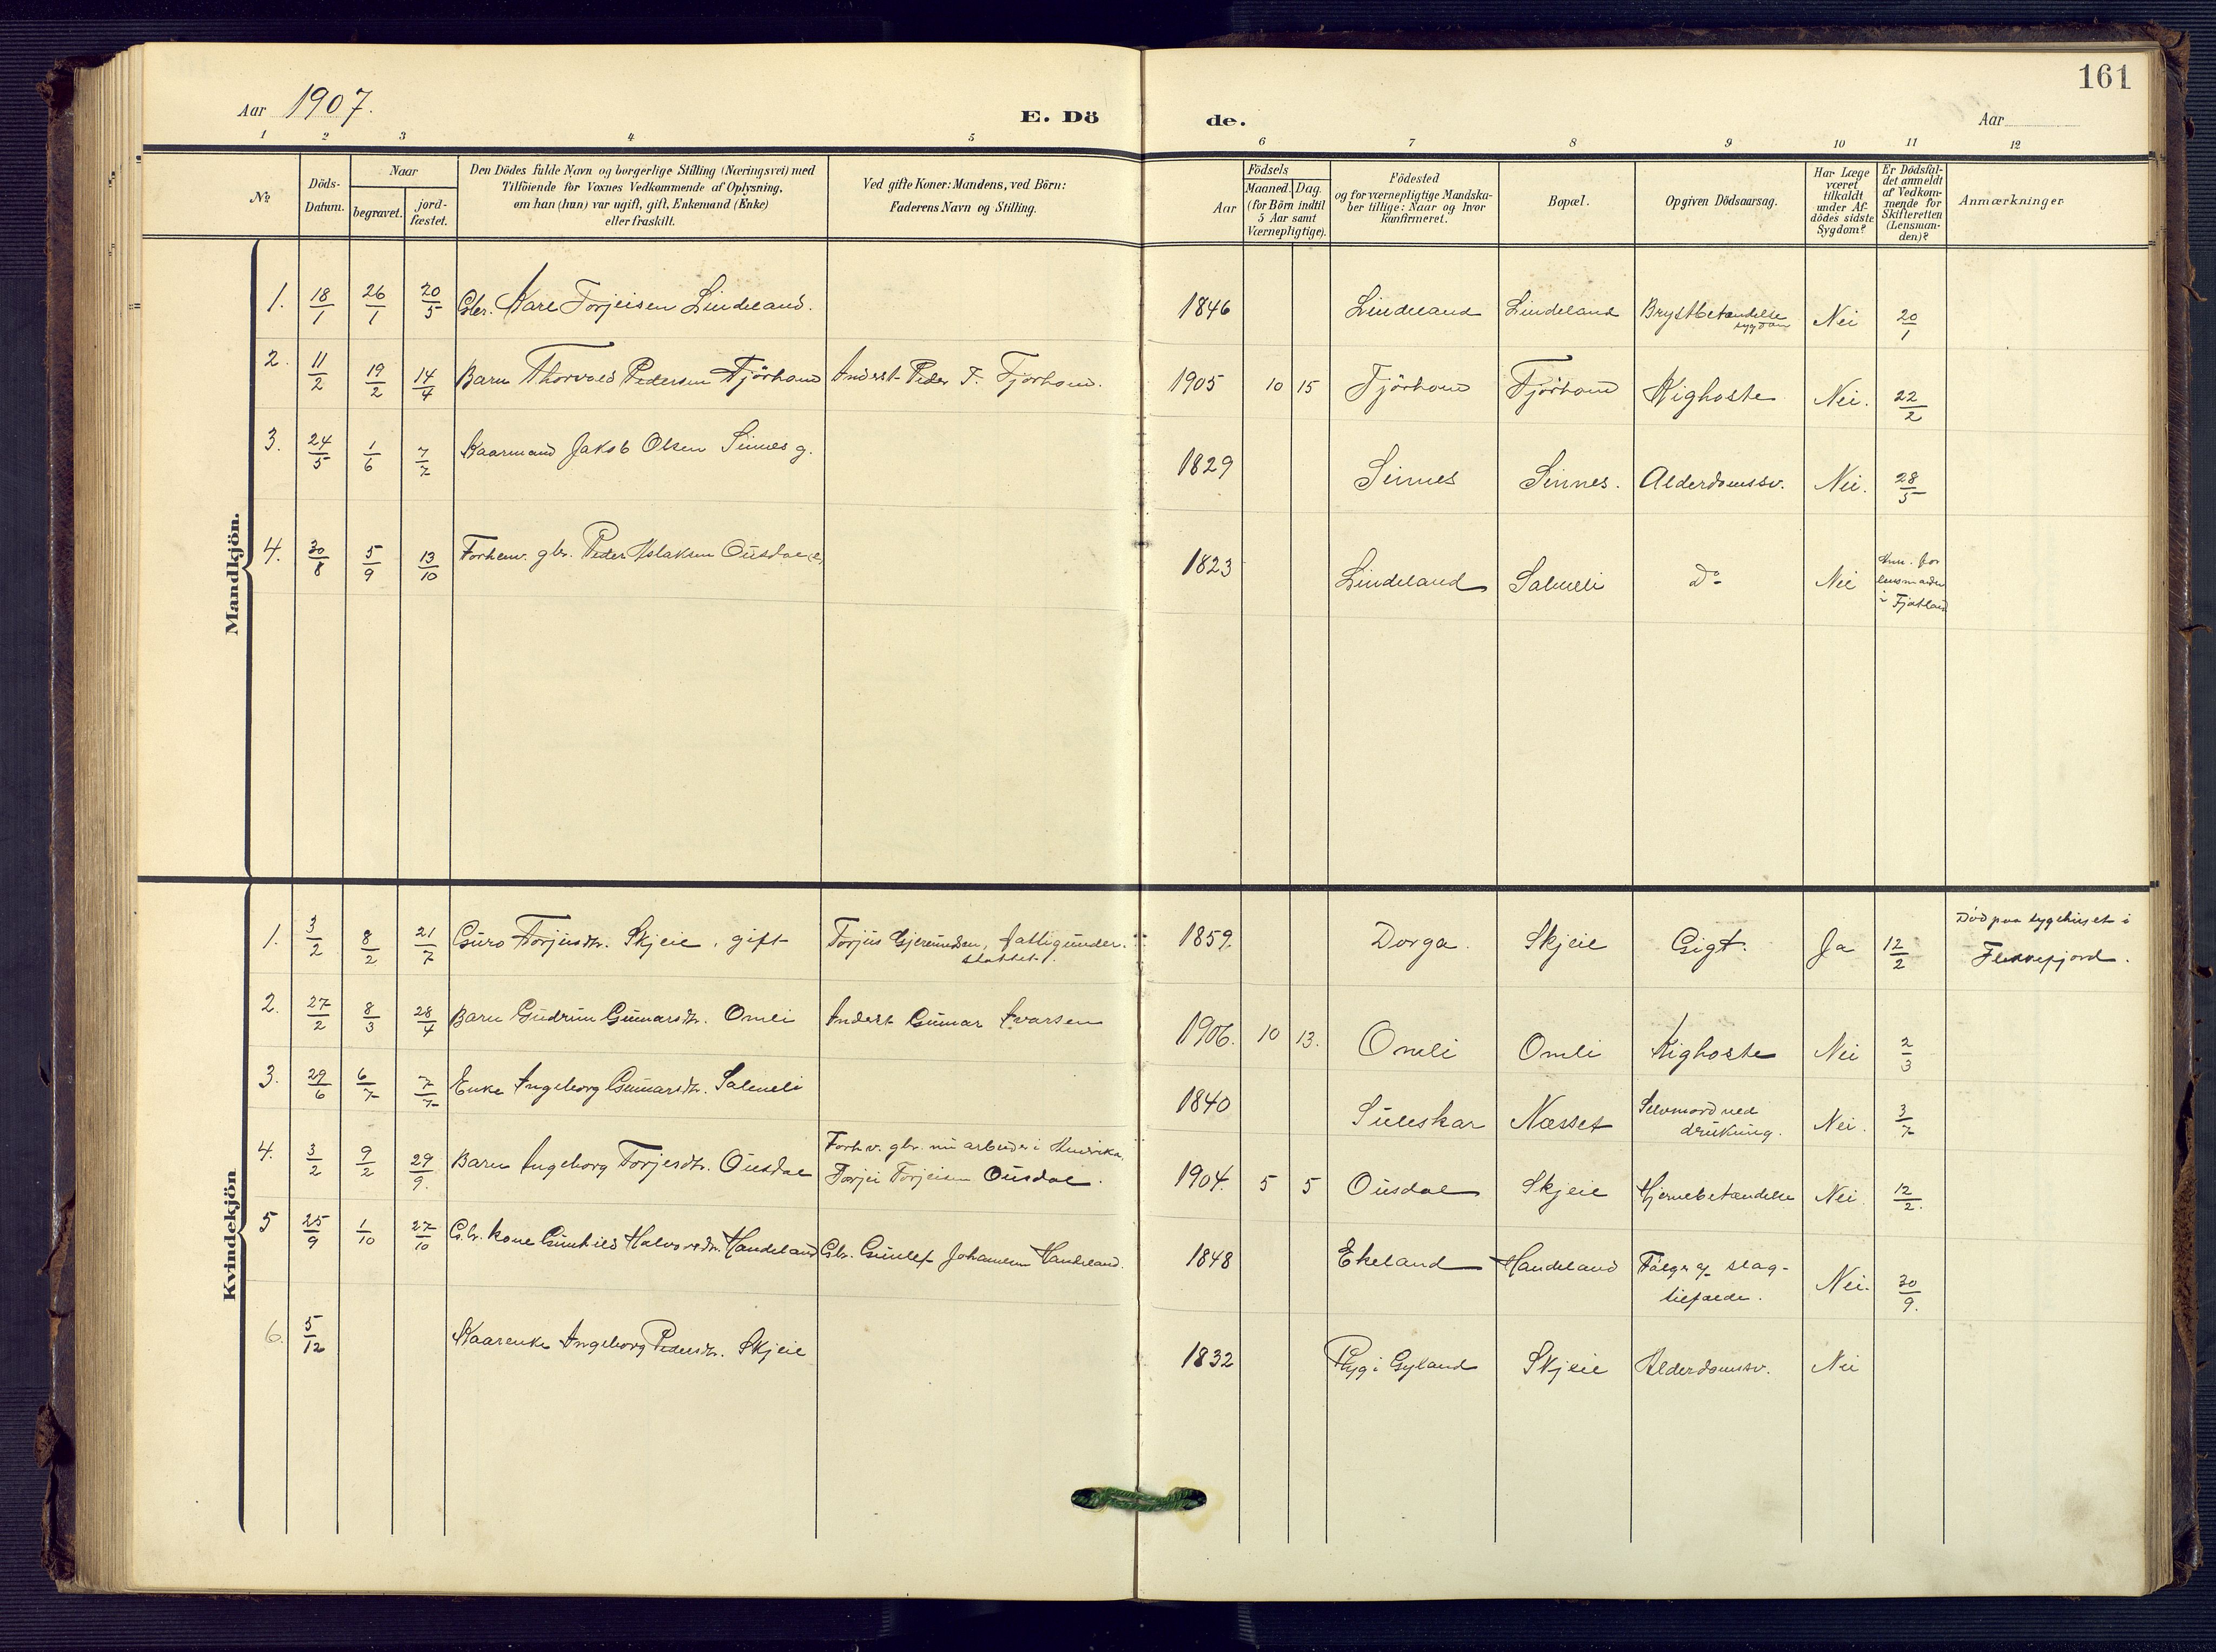 161
Aar 1907.
E. Dö de.
Aar
1 2 3 4 5 6 7 8 9 10 11 12
№
Döds-Datum.
Naar
begravet.
jord-fæstet.
Den Dödes fulde Navn og borgerlige Stilling (Næringsvei) med
Tilföiende for Voxnes Vedkommende af Oplysning,
om han (hun) var ugift, gift, Enkemand (Enke)
eller fraskilt.
Ved gifte Koner: Mandens, ved Börn:
Faderens Navn og Stilling.
Födsels
Aar
Maaned. Dag.
(for Börn indtil
5 Aar samt
Værnepligtige).
Födested
og for værnepligtige Mandska-
ber tillige: Naar og hvor
konfirmeret.
Bopæl.
Opgiven Dödsaarsag.
Har Læge
været
tilkaldt
under Af-
dödes sidste
Sygdom?
Er Dödsfal-
det anmeldt
af Vedkom-
mende for
Skifteretten
(Lensman-
den)?
Anmærkninger
Mandkjön.
1. 18/1 26/1 20/5 Gbr. Kare Torjeisen Lindeland. 1846 Lindeland Lindeland Brystbetændelse Nei 20/1
2. 11/2 19/2 14/4 Barn Thorvald Pedersen Tjörhom Inderst Peder T. Tjorhom. 1905 10 15 Tjörhom Tjörhom Kighoste Nei. 22/2
3. 24/5 1/6 7/7 Kaarmand Jakob Olsen Sinnes g. 1829 Sinnes Sinnes. Alderdomssv. Nei. 28/5
4. 30/8 5/9 13/10 Forhenv. gbr. Peder Aslaksen Ousdal (e) 1823 Lindeland Salmeli do Nei Anm. for
lensmanden
i Fjotland
Kvindekjön
1. 3/2 8/2 21/7 Guro Torjusdtr. Skjeie, gift Torjus Gjermundsen, fattigunder-
støttet. 1859. Dorga. Skjeie Gigt. Ja 12/2 Död paa sygehuset i
Flekkefjord.
2. 27/2 8/3 28/4 Barn Gudrun Gunnarsdtr. Omli Inderst Gunnar Ivarsen 1906. 10 13. Omli Omli Kighoste Nei 2/3
3. 29/6 6/7 7/7 Enke Ingeborg Gunnarsdtr. Salmeli 1840 Suleskar Næsset Selvmord ved
drukning. Nei. 3/7
4. 3/2 9/2 29/9. Barn Ingeborg Torjesdtr. Ousdal Forhv. gbr. nu arbeider i Amerika.
Torjei Torjeisen Ousdal. 1904. 5 5 Ousdal Skjeie Hjernebetændelse Nei 12/2.
5 25/9 1/10 27/10 Gbr. kone Gunhild Halvorsdtr. Handeland Gbr. Gunlef Johannesen Handeland. 1848 Ekeland Handeland Fölger af slag-
tilfælde. Nei. 30/9.
6. 5/12 Kaarenke Ingeborg Pedersdtr. Skjeie 1832 i Gyland Skjeie Alderdomssv. Nei